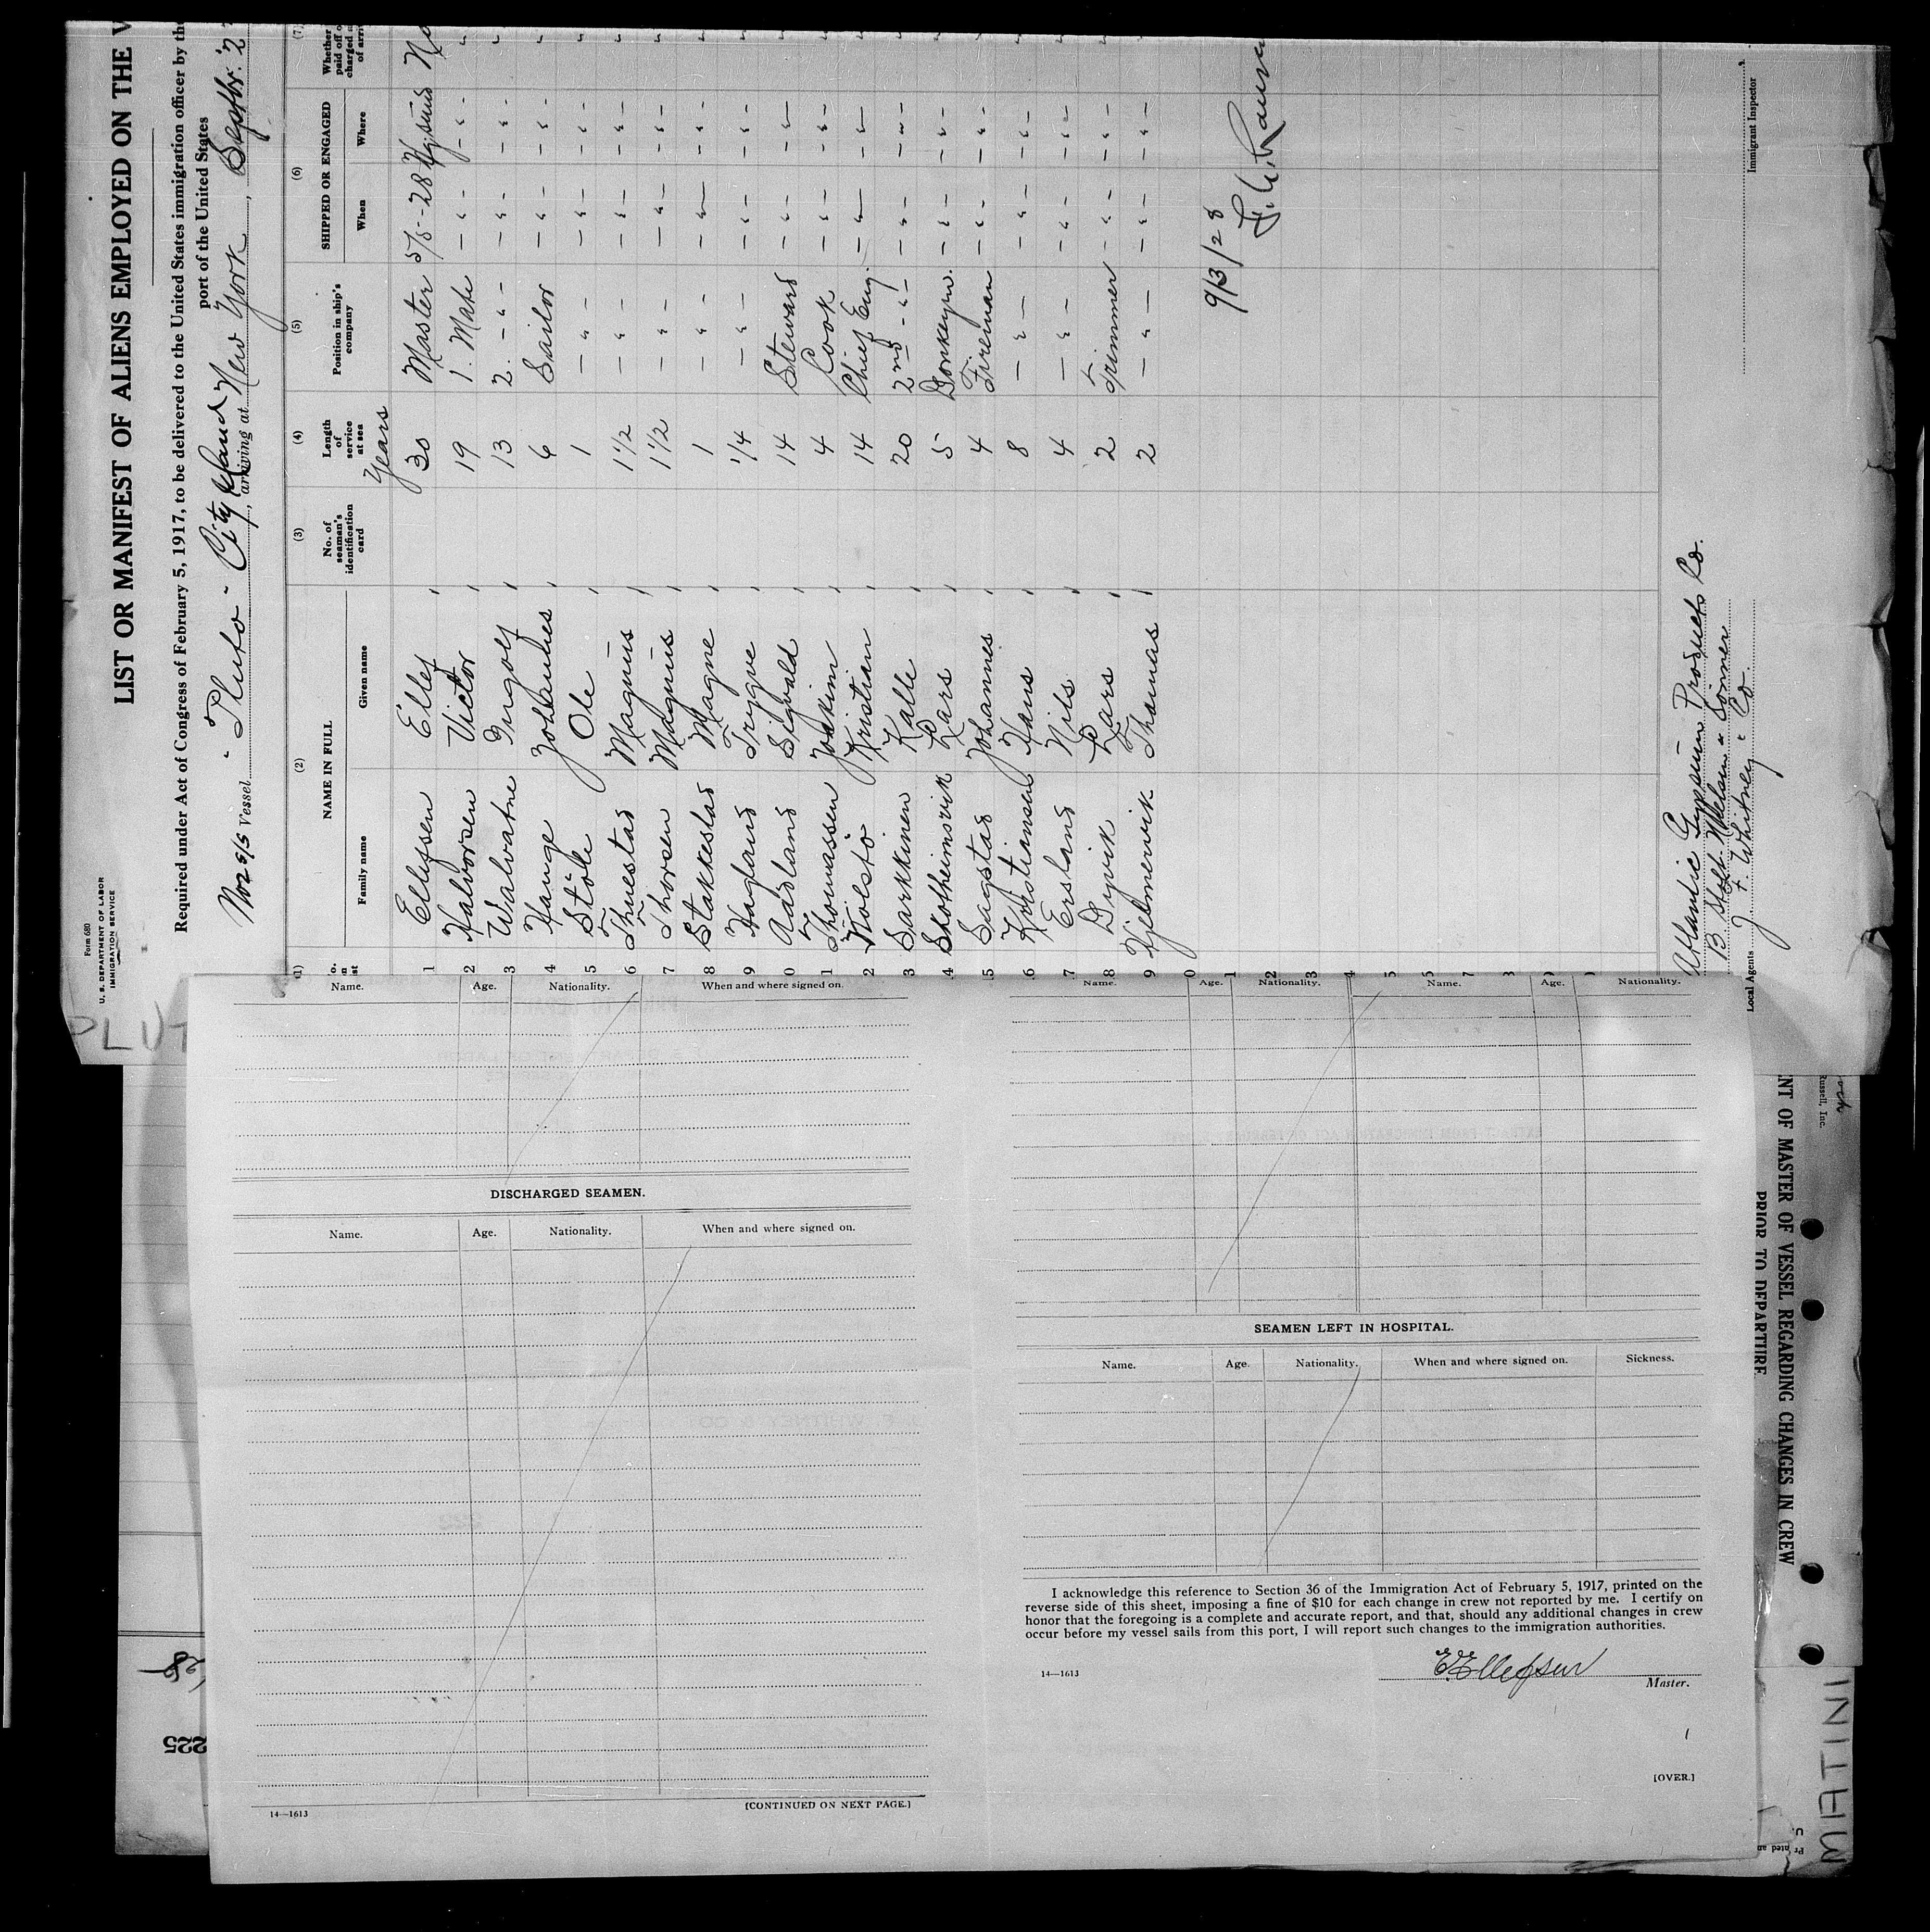 Form 680
U. S. DEPARTMENT OF LABOR
IMMIGRATION SERVICE
LIST OR MANIFEST OF ALIENS EMPLOYED ON THE V
Required under Act of Congress of February 5, 1917, to be delivered to the United States immigration officer by the
port of the United States
Vessel "Pluto" City Island, arriving at New York, Septbr. 2
(1) (2) (3) (4) (5) (6) (7)
NAME IN FULL
No. of seaman's identification card
Length of service at sea
Position in ship's company
SHIPPED OR ENGAGED
Whether paid off
Family name Given name When Where
Years
1 Ellefsen Ellef 30 Master 5/5-28 Hgsund No
2 Halvorsen Victor 19 1. Mate - " - - " - "
3 Walvatne Ingolf 13 2. - " - - " - - " - "
4 Hauge Johannes 6 Sailor - " - - " - "
5 Stöle Ole 1 - " - - " - - " - "
6 Thuestad Magnus 1 1/2 - " - - " - - " - "
7 Thorsen Magnus 1 1/2 - " - - " - - " - "
8 Stakkestad Magne 1 - " - - " - - " - "
9 Hagland Trygve 1/4 - " - - " - - " - "
0 Aadland Sigvald 14 Steward - " - - " - "
1 Thomassen Joakim 4 Cook - " - - " - "
2 Kolstö Kristian 14 Chief Eng. - " - - " - "
3 Sarkkinen Kalle 20 2nd - " - - " - - " - "
4 Skotheimsvik Lars 5 Donkeym. - " - - " - "
5 Sagstad Johannes 4 Fireman - " - - " - "
6 Kristiansen Hans 8 - " - - " - - " - "
7 Ersland Nils 4 - " - - " - - " - "
8 Dyvik Lars 2 Trimmer - " - - " - "
9 Hjelmervik Thomas 2 - " - - " - - " -
9/3/28
Atlantic Gypsum Products Co.
B. Stolt Nielsen & Sönner
Local Agents J. F. Whitney & Co.
Immigrant Inspector
PLUT
Name. Age. Nationality. When and where signed on.
DISCHARGED SEAMEN.
Name. Age. Nationality. When and where signed on.
14—1613
[CONTINUED ON NEXT PAGE.]
Name. Age. Nationality. Name. Age. Nationality.
SEAMEN LEFT IN HOSPITAL.
Name. Age. Nationality. When and where signed on. Sickness.
I acknowledge this reference to Section 36 of the Immigration Act of February 5, 1917, printed on the
reverse side of this sheet, imposing a fine of $10 for each change in crew not reported by me. I certify on
honor that the foregoing is a complete and accurate report, and that, should any additional changes in crew
occur before my vessel sails from this port, I will report such changes to the immigration authorities.
14—1613
E. Ellefsen
Master.
1
[OVER.]
Russell, Inc.
NT OF MASTER OF VESSEL REGARDING CHANGES IN CREW
PRIOR TO DEPARTURE
225
MATINI